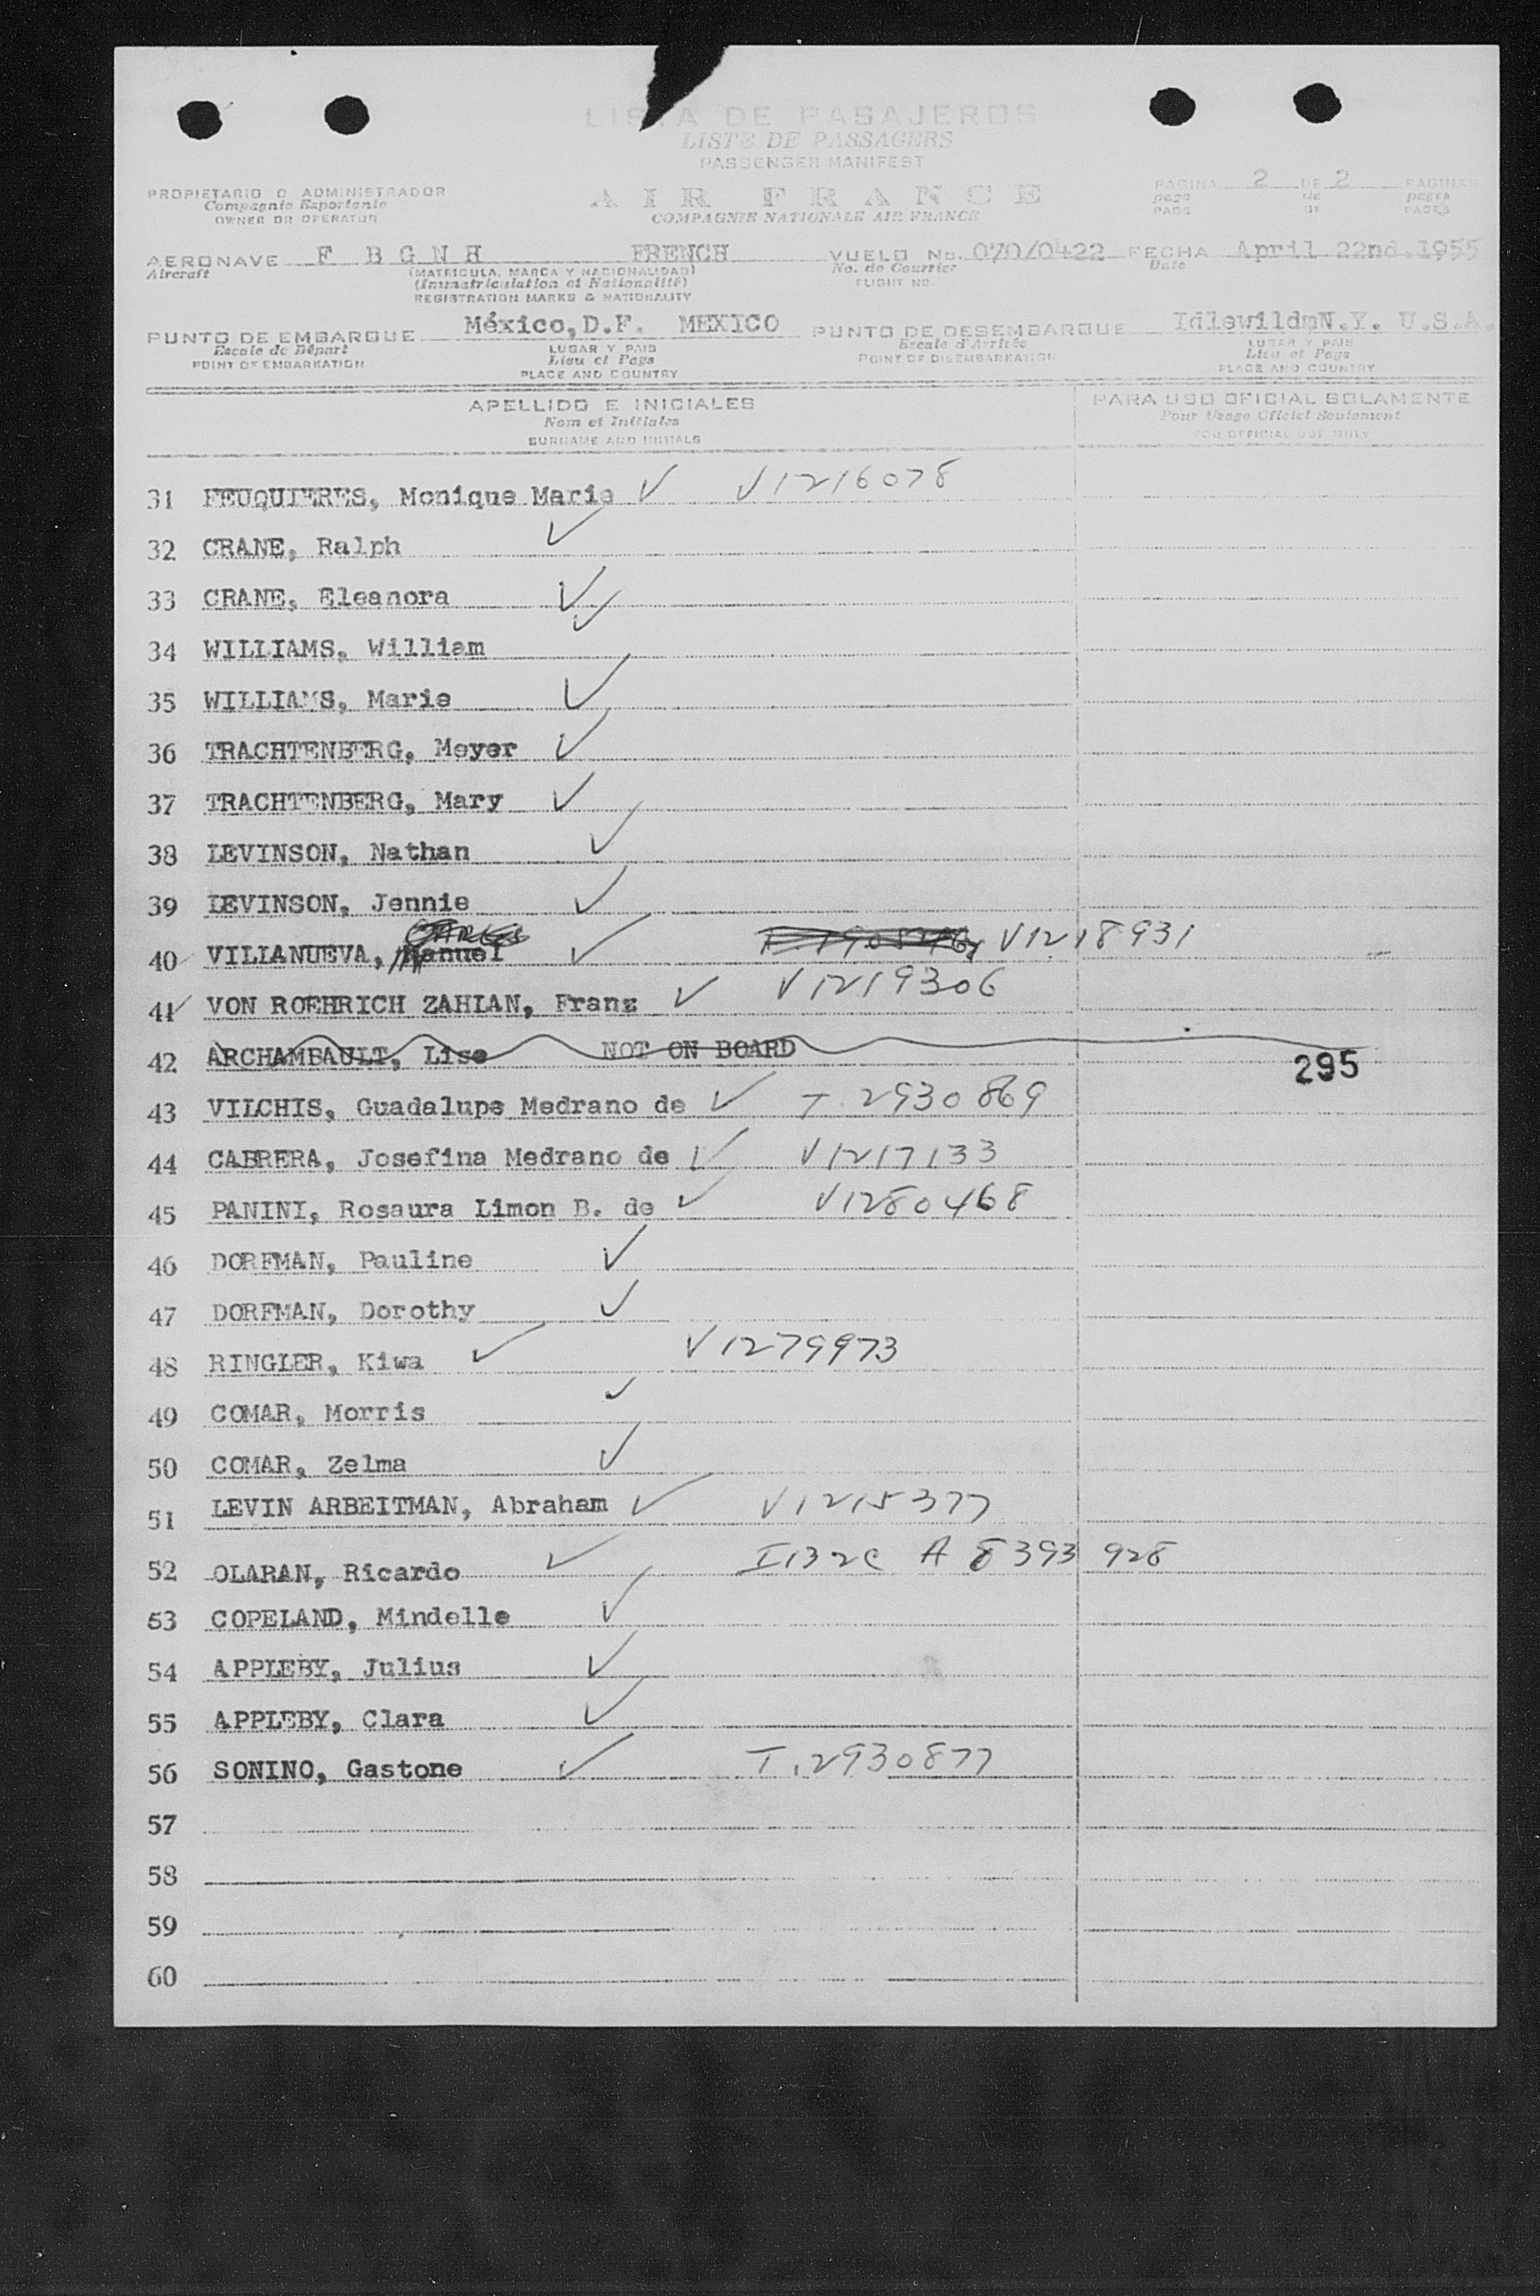 LISTA DE PASAJEROS
LISTE DE PASSAGERS
PASSENGER MANIFEST
PROPIETARIO O ADMINISTRADOR
Compagnie Exportante
OWNER OR OPERATOR
AIR FRANCE
COMPAGNIE NATIONALE AIR FRANCE
PAGINA 2 DE 2 PAGINAS
page de pages
PAGE OF PAGES
AERONAVE F B G N H FRENCH VUELO No. 070/0422 FECHA April 22nd.1955
Aircraft (MATRICULA, MARCA Y NACIONALIDAD) No. de Courrier Date
(Immatriculation et Nationalité) FLIGHT NO.
REGISTRATION MARKS & NATIONALITY
PUNTO DE EMBARQUE México,D.F. MEXICO PUNTO DE DESEMBARQUE IdlewildmN.Y. U.S.A.
Escale de Départ LUGAR Y PAIS Escale d'Arrivée LUGAR Y PAIS
POINT OF EMBARKATION Lieu et Pays POINT OF DISEMBARKATION Lieu et Pays
PLACE AND COUNTRY PLACE AND COUNTRY
APELLIDO E INICIALES PARA USO OFICIAL SOLAMENTE
Nom et Initiales Pour Usage Officiel Seulement
SURNAME AND INITIALS FOR OFFICIAL USE ONLY
31 FEUQUIERES, Monique Marie ✓ V1216078
32 CRANE, Ralph ✓
33 CRANE, Eleanora ✓
34 WILLIAMS, William ✓
35 WILLIAMS, Marie ✓
36 TRACHTENBERG, Meyer ✓
37 TRACHTENBERG, Mary ✓
38 LEVINSON, Nathan ✓
39 LEVINSON, Jennie ✓
40 VILLANUEVA, Manuel ✓ V1218931
41 VON ROEHRICH ZAHLAN, Franz ✓ V1219306
42 ARCHAMBAULT, Lise NOT ON BOARD
295
43 VILCHIS, Guadalupe Medrano de ✓ T. 2930869
44 CABRERA, Josefina Medrano de ✓ V1217133
45 PANINI, Rosaura Limon B. de ✓ V1280468
46 DORFMAN, Pauline ✓
47 DORFMAN, Dorothy ✓
48 RINGLER, Kiwa ✓ V1279973
49 COMAR, Morris ✓
50 COMAR, Zelma ✓
51 LEVIN ARBEITMAN, Abraham ✓ V1215377
52 OLARAN, Ricardo ✓ I132C A 8393 928
53 COPELAND, Mindelle ✓
54 APPLEBY, Julius ✓
55 APPLEBY, Clara ✓
56 SONINO, Gastone ✓ T.2930877
57
58
59
60